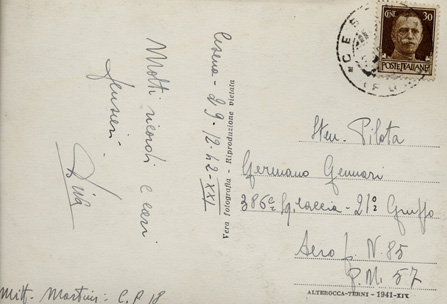 Cesena - li 9-12-42-XXI
Molti ricordi e cari
pensieri -
Dina
Mitt. Martini - C.P. 18
Vera fotografia - Riproduzione vietata
CENT. 30
POSTE ITALIANE
Sten. Pilota
Germano Gennari
386ª Sq. caccia - 21º Gruppo
Aero p. N. 85
P.M. 57
ALTEROCCA-TERNI - 1941-XIX